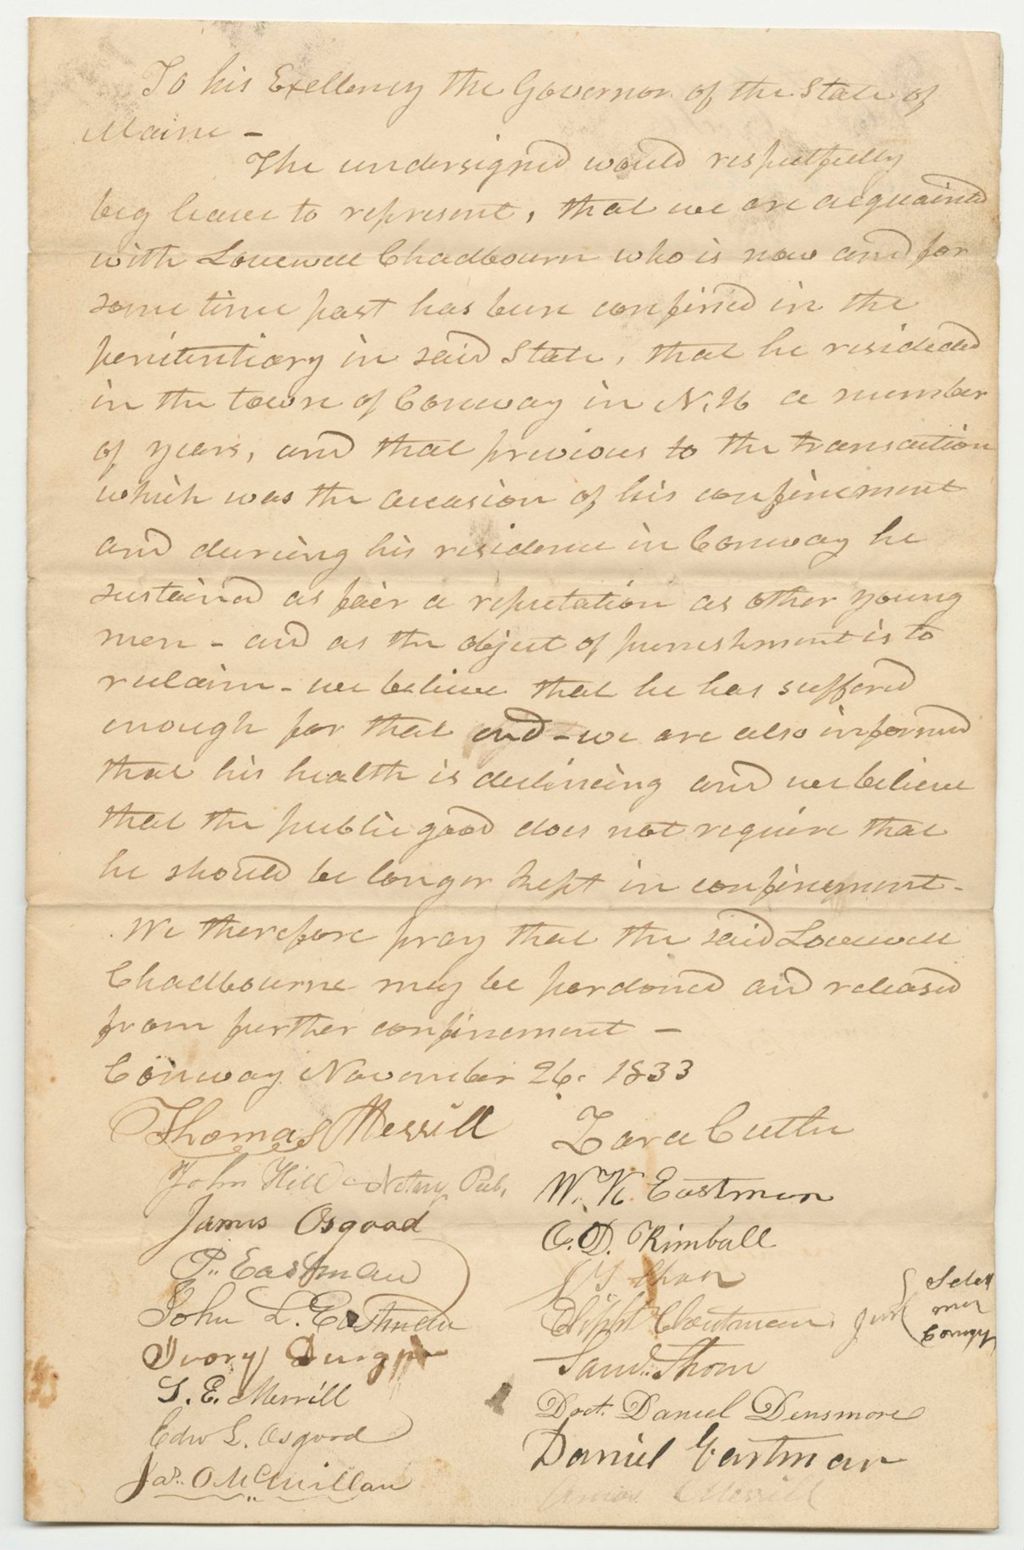 To his Exellency the Governor of the State of
Maine -
The undersigned would respectfully
beg leave to represent, that we are acquainted
with Lovewell Chadbourn who is now and for
some time past has been confined in the
penitentiary in said State, that he resideded
in the town of Conway in N.H a number
of years, and that previous to the transaction
which was the occasion of his confinement
and during his residence in Conway he
sustained as fair a reputation as other young
men - and as the object of punishment is to
reclaim - we believe that he has suffered
enough for that end - we are also informed
that his health is declining and we believe
that the public good does not require that
he should be longer kept in confinement -
We therefore pray that the said Lovewell
Chadbourne may be pardoned and released
from further confinement -
Conway November 26. 1833
Thomas Merrill
John Hill Notary Pub.
James Osgood
P. Eastman
John L. Eastman
Ivory
S. E. Merrill
Edw L. Osgood
Jas. O McMillan
Zara Cutler
W. K. Eastman
C. D. Kimball
Saml. Thom
Doct. Daniel Densmore
Daniel Eastman
Merrill
Select
men
Conway